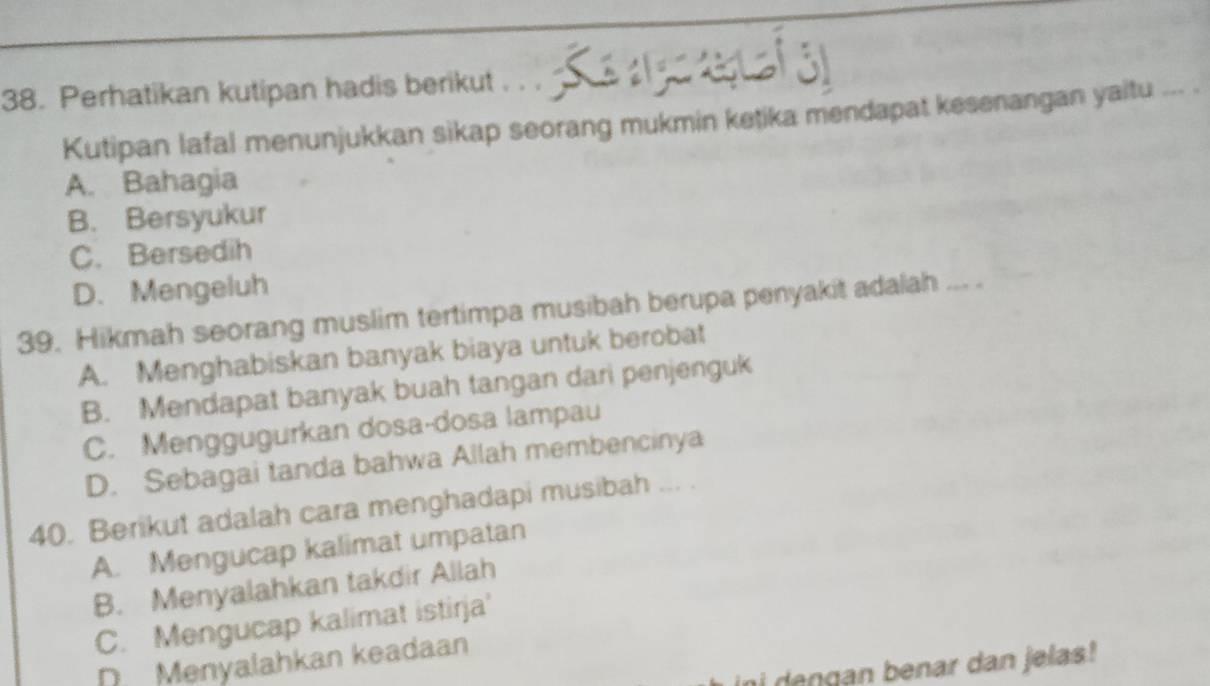 38. Perhatikan kutipan hadis berikut . . . إِنْ أَصَابَتْهُ سَرَّاءُ شَكَرَ
Kutipan lafal menunjukkan sikap seorang mukmin ketika mendapat kesenangan yaitu ... .
A. Bahagia
B. Bersyukur
C. Bersedih
D. Mengeluh
39. Hikmah seorang muslim tertimpa musibah berupa penyakit adalah ... .
A. Menghabiskan banyak biaya untuk berobat
B. Mendapat banyak buah tangan dari penjenguk
C. Menggugurkan dosa-dosa lampau
D. Sebagai tanda bahwa Allah membencinya
40. Berikut adalah cara menghadapi musibah ... .
A. Mengucap kalimat umpatan
B. Menyalahkan takdir Allah
C. Mengucap kalimat istirja'
D. Menyalahkan keadaan
ini dengan benar dan jelas!